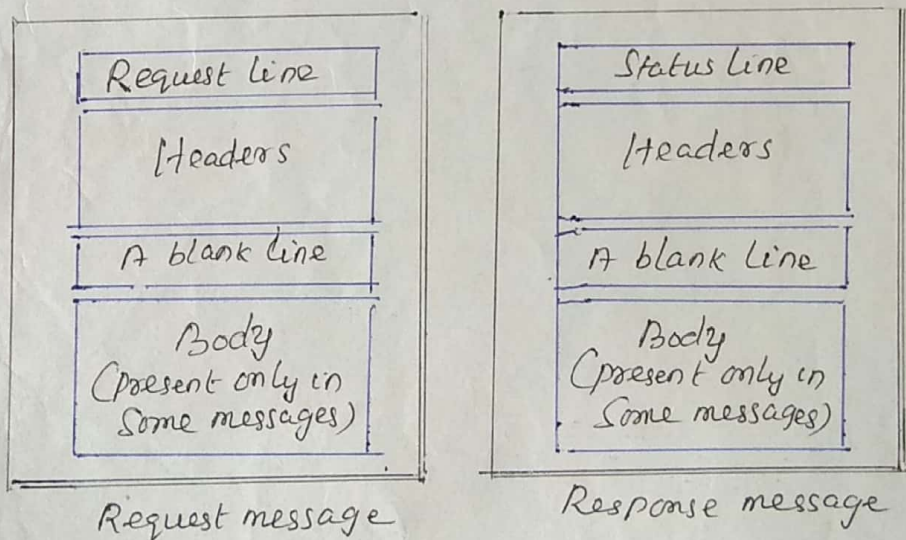 Request line
Headers
A blank line
Body
(present only in
some messages)
Request message
Status Line
Headers
A blank Line
Body
(present only in
some messages)
Response message